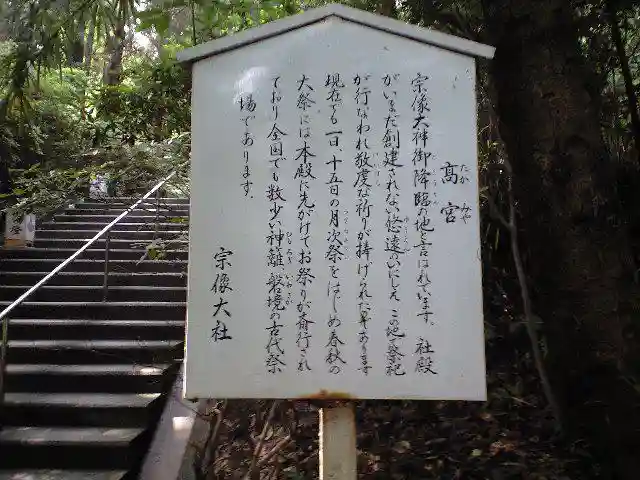 高宮
たかみや
宗像大神御降臨の地と言はれています。社殿
がいまだ創建されない悠遠のいにしえ、この地で祭祀
が行なわれ敬虔な祈りが捧げられた所であります
現在でも一日、十五日の月次祭をはじめ春秋の
大祭には本殿に先がけてお祭りが斎行され
ており全国でも数少い神籬、磐境の古代祭
場であります。
宗像大社